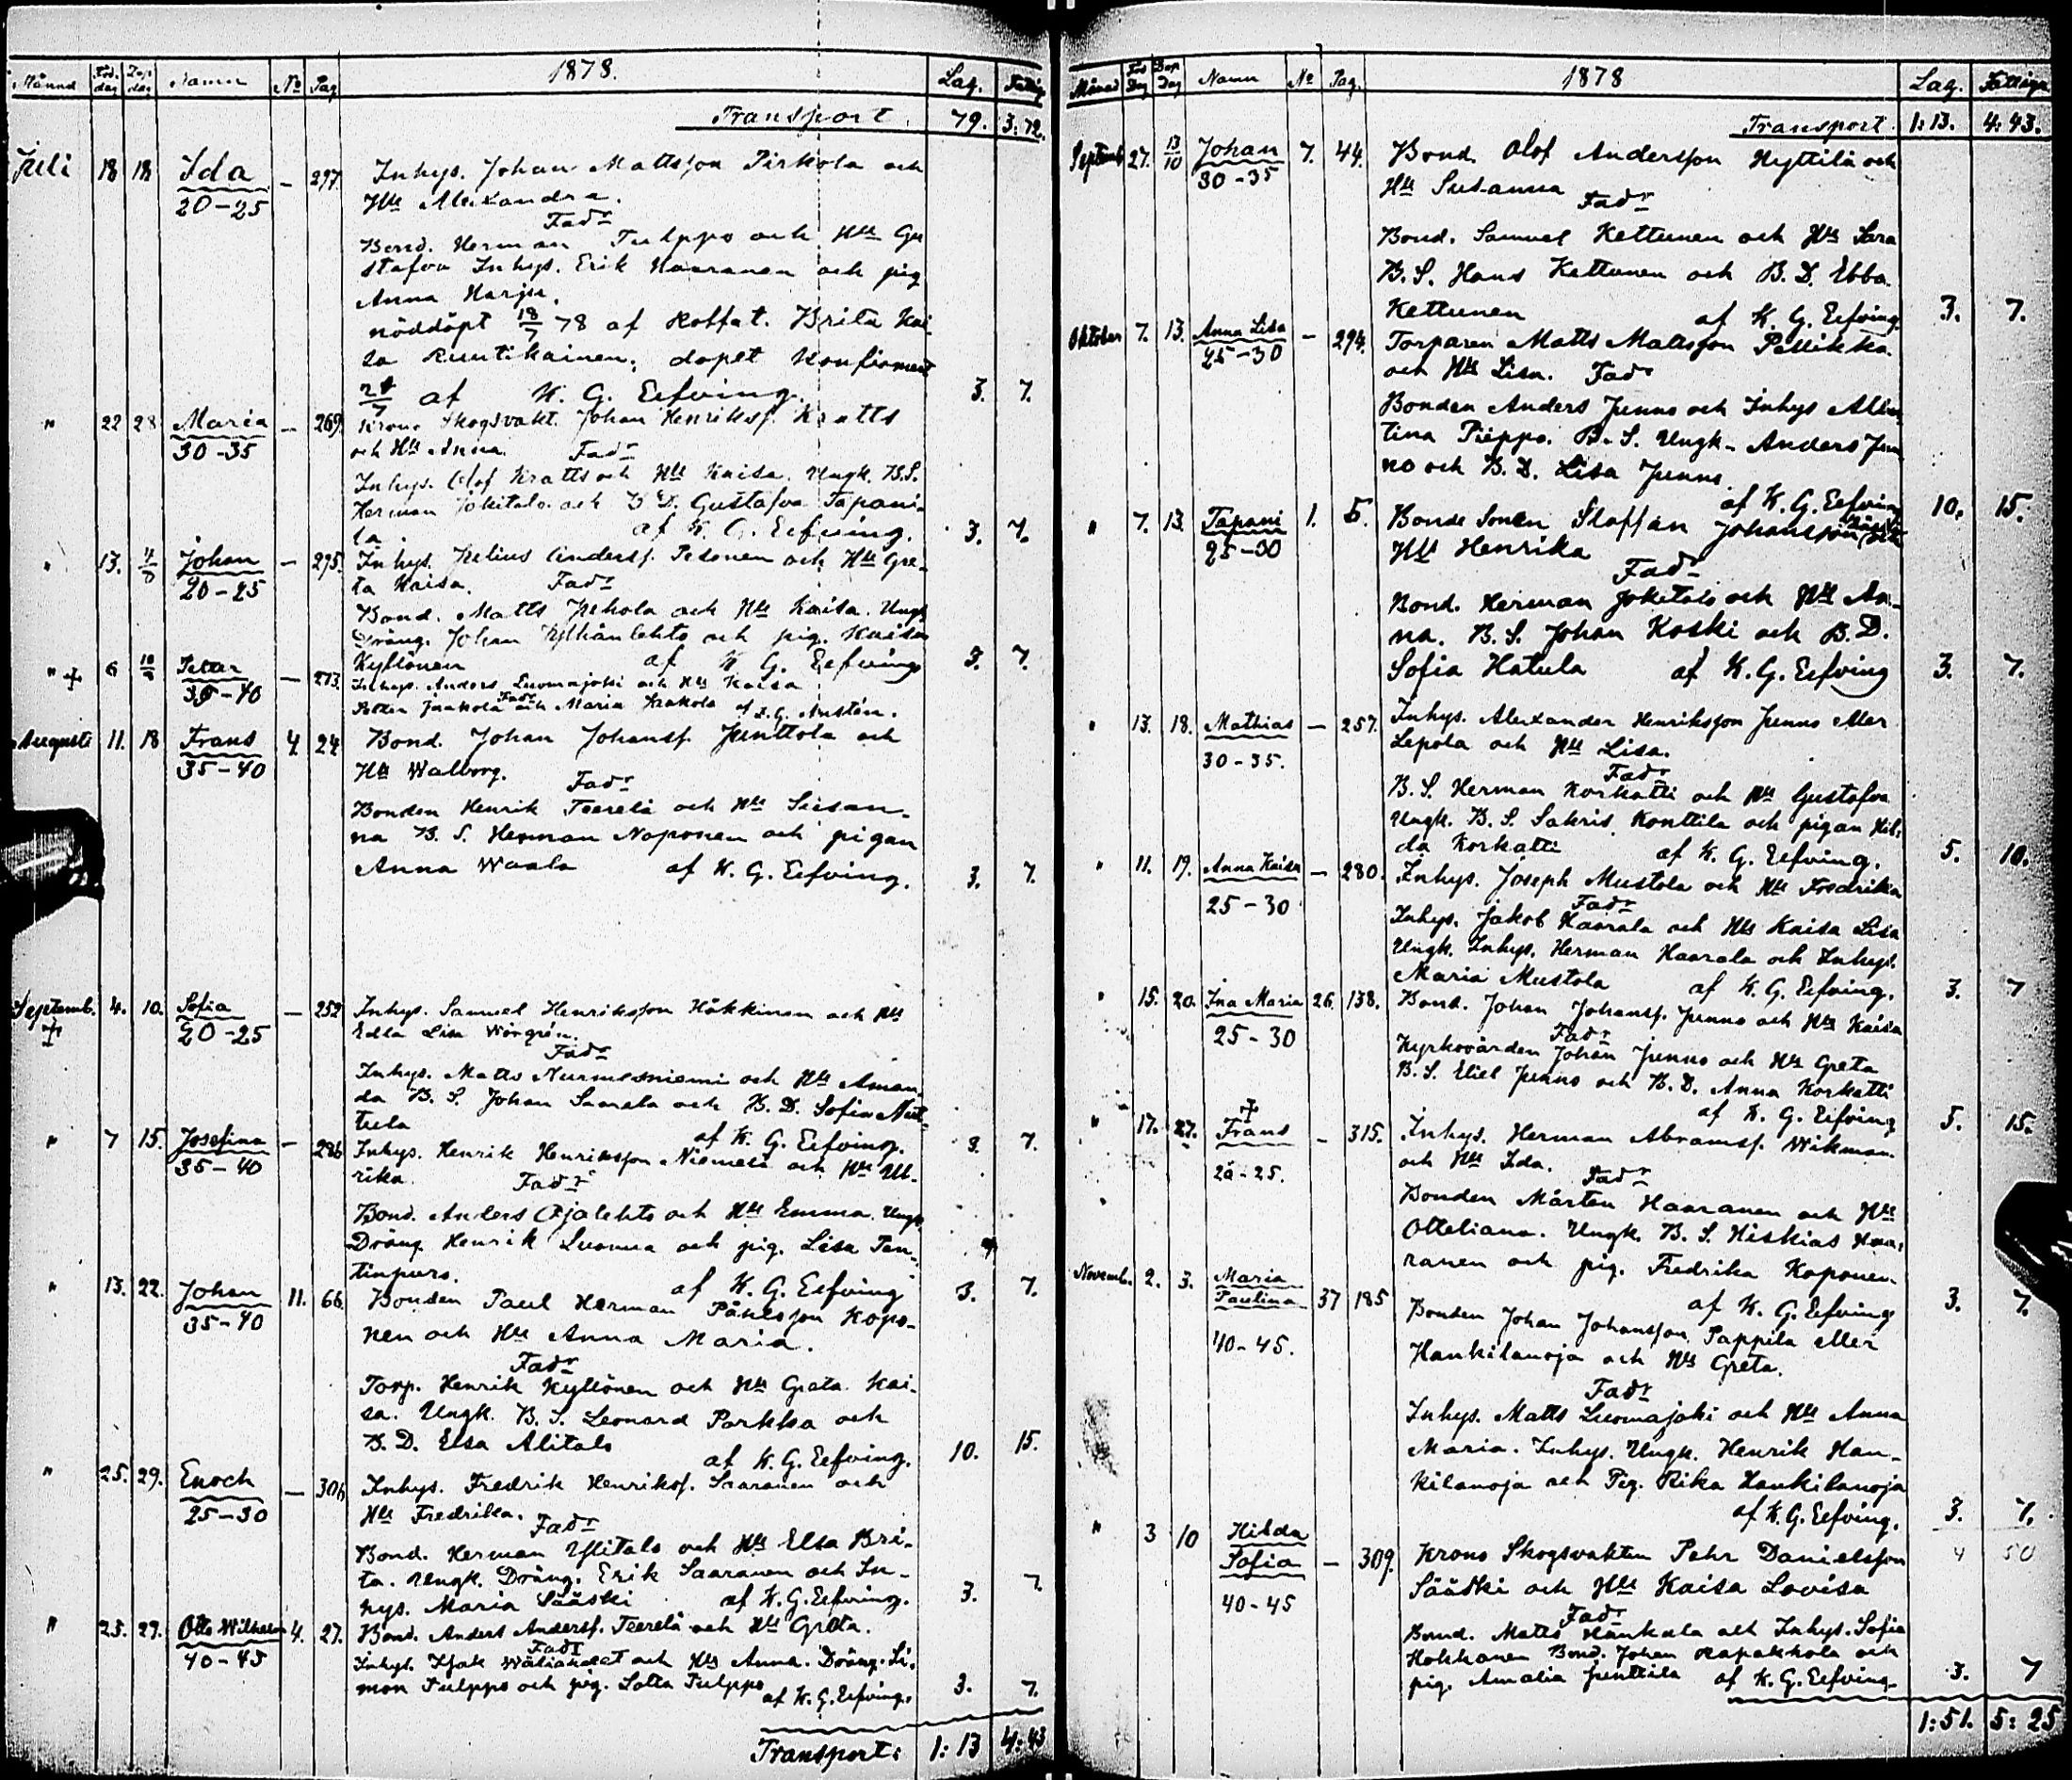 Månad Föd. dag Döp dag Namn No Pag 1878. Lag. Fattig
Transport 79. 3:72.
Juli 18 18 Ida — 297. Inhys. Johan Mattsson Pirkola och
20-25 Hu Alexandra.
Fadr
Bond. Herman Tulppo och Hu Gu
stafva Inhys. Erik Haaranen och pig
Anna Harju.
nöddöpt 18/7 78 af Brita Kai
sa Ruutikainen; dopet Konfirmert
af K. G. Eefving. 3. 7.
" 22 28 Maria — 269. Krono Skogsvakt. Johan Henriksf. Kratts
30-35 och Hu Anna. Fadr
Inhys. Olof Kratts och Hu Kaisa. Ungk. B.S.
Herman Jokitalo och B.D. Gustafva Tapani-
la. af K. G. Eefving. 3. 7.
" 13. Johan — 295. Inhys. Julius Andersf. Pesonen och Hu Gre-
20-25 ta Kaisa. Fadr
Bond. Matts Juhola och Hu Kaisa. Ungk
Dräng. Johan och pig. Kaisa
Kyllönen af K G. Eefving 3. 7.
" + 6 Petter — 273. Inhys. Anders Luomajoki och Hu Kaisa
35-40 Fadr
Petter Jaakola och Maria Jaakola af
Augusti 11. 18 Frans 4. 24 Bond. Johan Johansf. Junttola och
35-40 Hu Walborg.
Fadr
Bonden Henrik Teerelä och Hu Susan-
na B. S. Herman Naponen och pigan
Anna Waala af K. G. Eefving. 3. 7.
Septemb. 4. 10. Sofia — 252 Inhys. Samuel Henriksson Häkkinen och Hu
+ 20-25 Edla Lisa Wörgrén.
Fadr
Inhys. Matts Nurmesniemi och Hu Aman-
da B. S. Johan Saarela och B. D. Sofia
tula af K. G. Eefving. 3. 7.
" 7 15. Josefina — 286 Inhys. Henrik Henriksson Niemelä och Hu Ul-
35-40 rika. Fadr
Bond. Anders Ojalehto och Hu Emma. Ungk
Dräng Henrik Luomua och pig. Lisa Pen-
tinpuro. af K. G. Eefving 3. 7.
" 13. 22. Johan 11. 66. Bonden Paul Herman Påhlsson Kopo-
35-40 nen och Hu Anna Maria.
Fadr
Torp. Henrik Kyllönen och Hu Greta Kai-
sa. Ungk. B. S. Leonard Parkka och
B. D. Elsa Alitalo af K. G. Eefving. 10. 15.
" 25. 29. Enoch — 306 Inhys. Fredrik Henriksf. Saaranen och
25-30 Hu Fredrika.
Fadr
Bond. Herman Ylitalo och Hu Elsa Bri-
ta. Ungk. Dräng. Erik Saaranen och In-
hys. Maria Sääski af K. G. Eefving. 3. 7
" 25. 29. Otto Wilhelm 4. 27. Bond. Anders Andersf. Teerelä och Hu Greta.
40-45 Fadr
Inhys. Isak och Hu Anna. Dräng. Si-
mon Tulppo och pig. Lotta Tulppo af K. G. Eefving. 3. 7.
Transport: 1:13 4:43
Månad Föd Dag Döp Dag Namn No Pag. 1878 Lag. Fattiga
Transport. 1:13. 4:43.
Septemb 27. 13/10 Johan 7. 44. Bond. Olof Andersson Hyttilä och
30-35 Hu Susanna
Fadr
Bond. Samuel Kettunen och Hu Sara
B. S. Hans Kettunen och B. D. Ebba
Kettunen af K. G. Eefving. 3. 7.
Oktober 7. 13. Anna Lisa — 294. Torparen Matts Mattsson Pellikka
25-30 och Hu Lisa. Fadr
Bonden Anders Junno och Inhys Albe
tina Pieppo. B. S. Ungk. Anders Jun
no och B. D. Lisa Junno
af K. G. Eefving 10. 15.
" 7. 13. Tapani 1. 5. Bonde Sonen Staffan Johansson
25-30 Hu Henrika
Fadr
Bond. Herman Jokitalo och Hu An-
na. B. S. Johan Koski och B. D.
Sofia Hatula af K. G. Eefving 3. 7.
" 13. 18. Mathias — 257. Inhys. Alexander Henriksson Junno eller
30-35. Lepola och Hu Lisa.
Fadr
B. S. Herman Korkatti och Hu Gustafva
Ungk. B. S. Sakris Konttila och pigan Hil-
da Korkatti af K. G. Eefving. 5. 10.
" 11. 19. Anna Kaisa — 280. Inhys. Joseph Mustola och Hu Fredrika
25-30 Fadr
Inhys. Jakob Haarala och Hu Kaisa Lisa
Ungk. Inhys. Herman Haarala och Inhys.
Maria Mustola af K. G. Eefving. 3. 7
" 15. 20. Ina Maria 26. 138. Bond. Johan Johansf. Junno och Hu Kaisa
25-30 Fadr
Kyrkovärden Johan Junno och Hu Greta
B. S. Eliel Junno och B. D. Anna Korkatti
af K. G. Eefving 5. 15.
" 17. 27. + Frans — 315. Inhys. Herman Abramsf. Wikman
20-25. och Hu Ida.
Fadr
Bonden Mårten Haaranen och Hu
Otteliana. Ungk. B. S. Hiskias Haa-
ranen och pig. Fredrika Koponen
af K. G. Eefving 3. 7.
Novemb. 2. 3. Maria Paulina 37 185 Bonden Johan Johansson Pappila eller
40-45. Hankilanoja och Hu Greta.
Fadr
Inhys. Matts Luomajoki och Hu Anna
Maria. Inhys. Ungk. Henrik Han-
kilanoja och Pig. Rika Hankilanoja
af K. G. Eefving. 3. 7.
" 3 10 Hilda Sofia — 309. Krono Skogsvakten Pehr Danielsson 4 50
40-45 Sääski och Hu Kaisa Lovisa
Fadr
Bond. Matts Hankala och Inhys. Sofia
Hokkanen Bond. Johan Rapakkola och
pig. Amalia Junttila af K. G. Eefving. 3. 7
1:51. 5:25